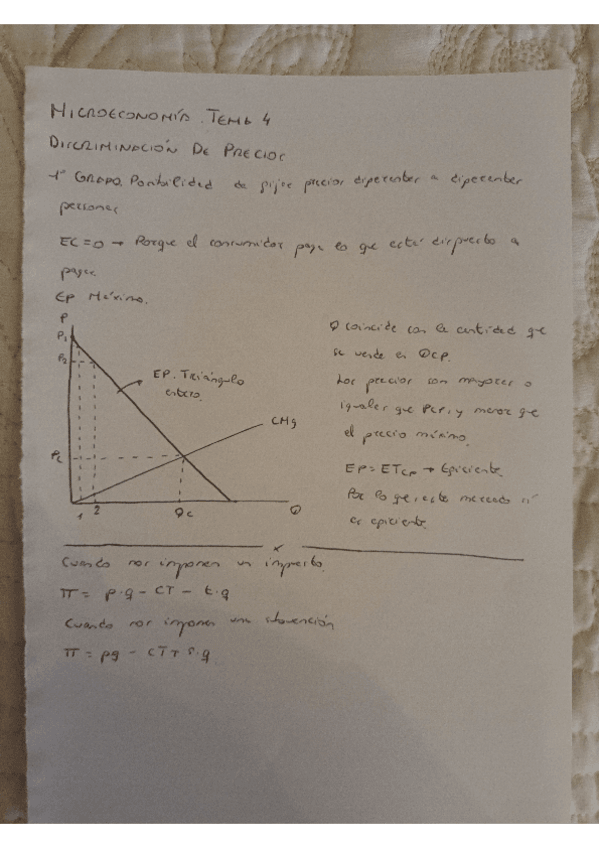 MICROECONOMÍA. TEMA 4
DISCRIMINACIÓN DE PRECIOS
1º GRADO. Posibilidad de fijar precios diferentes a diferentes
personas
EC=0 → Porque el consumidor paga lo que está dispuesto a
pagar
EP Máximo.
P
P1
P2
EP. Triángulo
entero.
CMg
Pc
1 2 Qc Q
Q coincide con la cantidad que
se vende en QCP.
Los precios son mayores o
iguales que PCP, y menor que
el precio máximo.
EP = ETCP → Eficiente.
Por lo que, este mercado sí
es eficiente.
x
Cuando nos imponen un impuesto.
π = p·q - CT - t·q
Cuando nos imponen una subvención
π = pq - CT + s·q